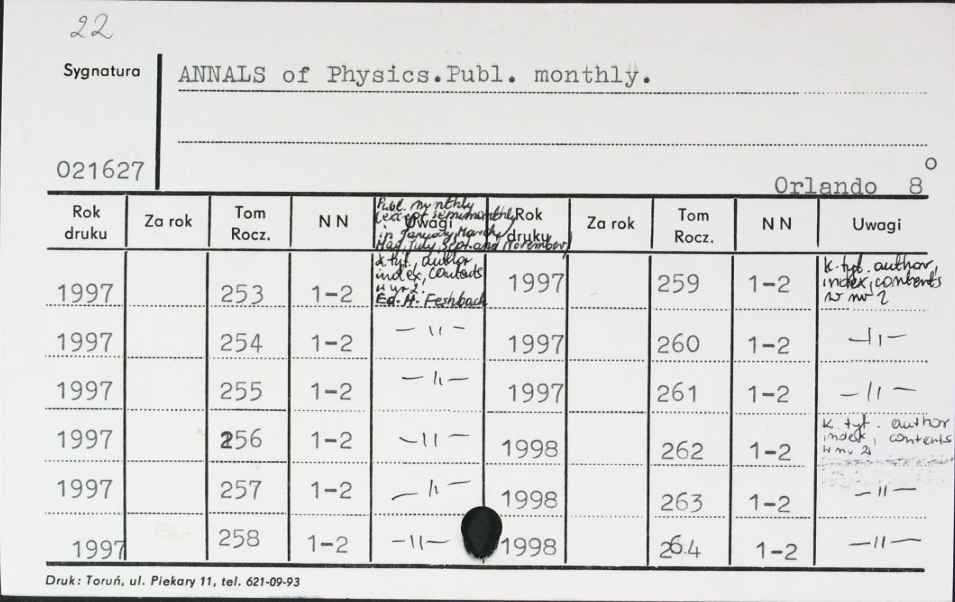 22
Sygnatura ANNALS of Physics.Publ. monthly.
021627
Orlando 8°
Rok druku Za rok Tom Rocz. N N Uwagi Rok druku Za rok Tom Rocz. N N Uwagi
Publ. monthly
(except semimonthly
in January, March,
May, July, Sept. and November)
k. tyt., author
index, contents
w nr 2.
Ed. H. Feshbach
1997 253 1-2 1997 259 1-2 k. tyt. author,
index, contents
w nr 2
1997 254 1-2 —〃— 1997 260 1-2 —〃—
1997 255 1-2 —〃— 1997 261 1-2 —〃—
1997 256 1-2 —〃— 1998 262 1-2 k. tyt. author
index, contents
w nr 2
1997 257 1-2 —〃— 1998 263 1-2 —〃—
1997 258 1-2 —〃— 1998 264 1-2 —〃—
Druk: Toruń, ul. Piekary 11, tel. 621-09-93